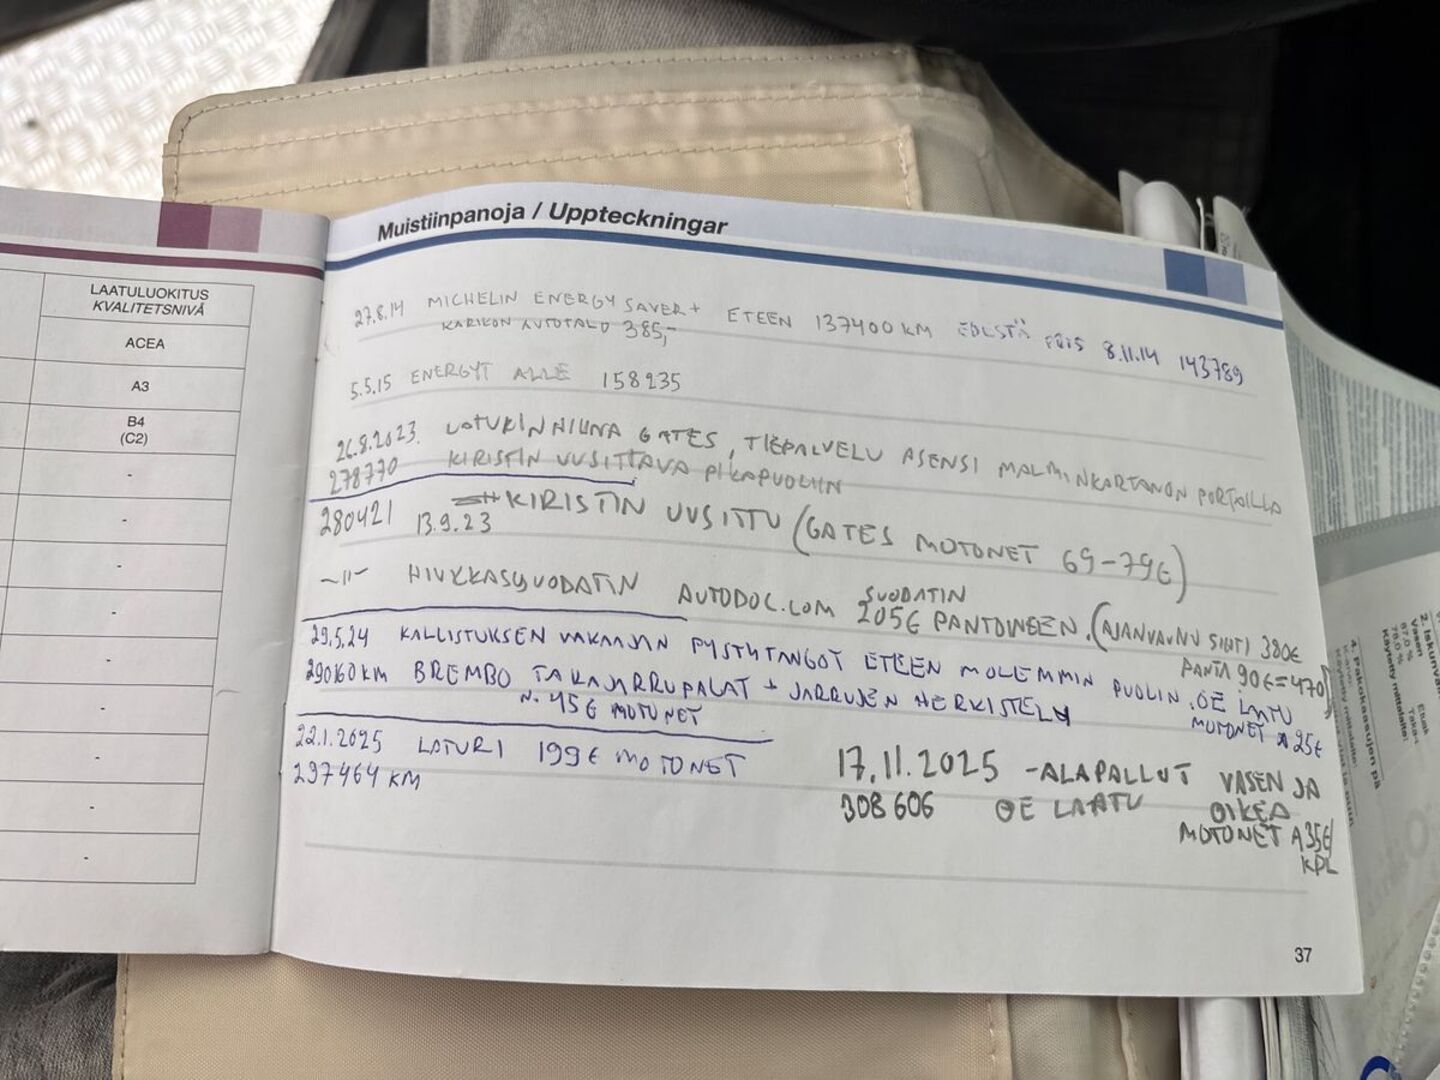 LAATULUOKITUS
KVALITETSNIVÅ
ACEA
A3
B4
(C2)
-
-
-
-
-
-
-
-
-
Muistiinpanoja / Uppteckningar
27.8.14 MICHELIN ENERGY SAVER+ ETEEN 137400 KM EDESTÄ POIS 8.11.14 143789
KARIKON AUTOTALO 385,-
5.5.15 ENERGYT ALLE 158235
26.8.2023. LATURINHIHNA GATES, TIEPALVELU ASENSI MALMINKARTANON PORTAILLA
278770 KIRISTIN UUSITTAVA PIKAPUOLIIN
280421 13.9.23 KIRISTIN UUSITTU (GATES MOTONET 69-79€)
-"- HIUKKASSUODATIN AUTODOC.COM SUODATIN
205€ PANTOINEEN. (AJANVARAUS 380€
PANTA 90€=470)
29.5.24 KALLISTUKSEN VAKAAJAN PYSTYTANGOT ETEEN MOLEMMIN PUOLIN. OE LAATU
MOTONET A 25€
290160 KM BREMBO TAKAJARRUPALAT + JARRUJEN HERKISTELY
N. 45€ MOTONET
22.1.2025 LATURI 199€ MOTONET
297464 KM
17.11.2025 -ALAPALLOT VASEN JA
308606 OE LAATU OIKEA
MOTONET A 35€/
KPL
37